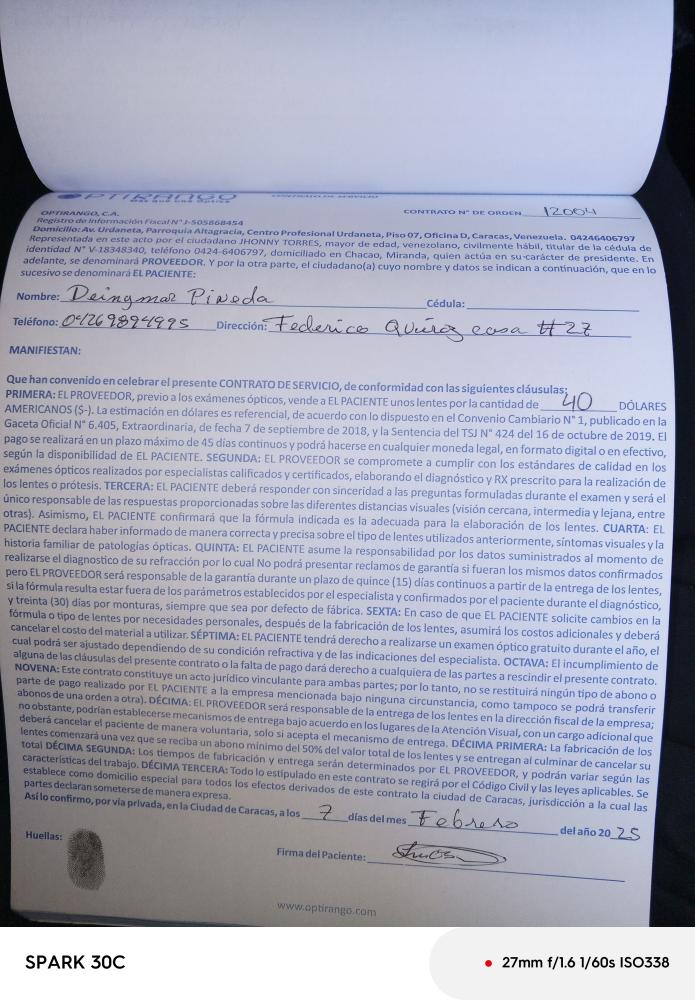 OPTIRANGO
CONTRATO DE SERVICIO
OPTIRANGO, C.A.
CONTRATO N° DE ORDEN 12004
Registro de Información Fiscal N° J-505868454
Domicilio: Av. Urdaneta, Parroquia Altagracia, Centro Profesional Urdaneta, Piso 07, Oficina D, Caracas, Venezuela. 04246406797
Representada en este acto por el ciudadano JHONNY TORRES, mayor de edad, venezolano, civilmente hábil, titular de la cédula de
identidad N° V-18348340, teléfono 0424-6406797, domiciliado en Chacao, Miranda, quien actúa en su carácter de presidente. En
adelante, se denominará PROVEEDOR. Y por la otra parte, el ciudadano(a) cuyo nombre y datos se indican a continuación, que en lo
sucesivo se denominará EL PACIENTE:
Nombre: Deingmar Pineda Cédula:
Teléfono: 04269894995 Dirección: Federico Quiroz casa # 27
MANIFIESTAN:
Que han convenido en celebrar el presente CONTRATO DE SERVICIO, de conformidad con las siguientes cláusulas:
PRIMERA: EL PROVEEDOR, previo a los exámenes ópticos, vende a EL PACIENTE unos lentes por la cantidad de 40 DÓLARES
AMERICANOS ($-). La estimación en dólares es referencial, de acuerdo con lo dispuesto en el Convenio Cambiario N° 1, publicado en la
Gaceta Oficial N° 6.405, Extraordinaria, de fecha 7 de septiembre de 2018, y la Sentencia del TSJ N° 424 del 16 de octubre de 2019. El
pago se realizará en un plazo máximo de 45 días continuos y podrá hacerse en cualquier moneda legal, en formato digital o en efectivo,
según la disponibilidad de EL PACIENTE. SEGUNDA: EL PROVEEDOR se compromete a cumplir con los estándares de calidad en los
exámenes ópticos realizados por especialistas calificados y certificados, elaborando el diagnóstico y RX prescrito para la realización de
los lentes o prótesis. TERCERA: EL PACIENTE deberá responder con sinceridad a las preguntas formuladas durante el examen y será el
único responsable de las respuestas proporcionadas sobre las diferentes distancias visuales (visión cercana, intermedia y lejana, entre
otras). Asimismo, EL PACIENTE confirmará que la fórmula indicada es la adecuada para la elaboración de los lentes. CUARTA: EL
PACIENTE declara haber informado de manera correcta y precisa sobre el tipo de lentes utilizados anteriormente, síntomas visuales y la
historia familiar de patologías ópticas. QUINTA: EL PACIENTE asume la responsabilidad por los datos suministrados al momento de
realizarse el diagnostico de su refracción por lo cual No podrá presentar reclamos de garantía si fueran los mismos datos confirmados
pero EL PROVEEDOR será responsable de la garantía durante un plazo de quince (15) días continuos a partir de la entrega de los lentes,
si la fórmula resulta estar fuera de los parámetros establecidos por el especialista y confirmados por el paciente durante el diagnóstico,
y treinta (30) días por monturas, siempre que sea por defecto de fábrica. SEXTA: En caso de que EL PACIENTE solicite cambios en la
fórmula o tipo de lentes por necesidades personales, después de la fabricación de los lentes, asumirá los costos adicionales y deberá
cancelar el costo del material a utilizar. SÉPTIMA: EL PACIENTE tendrá derecho a realizarse un examen óptico gratuito durante el año, el
cual podrá ser ajustado dependiendo de su condición refractiva y de las indicaciones del especialista. OCTAVA: El incumplimiento de
alguna de las cláusulas del presente contrato o la falta de pago dará derecho a cualquiera de las partes a rescindir el presente contrato.
NOVENA: Este contrato constituye un acto jurídico vinculante para ambas partes; por lo tanto, no se restituirá ningún tipo de abono o
parte de pago realizado por EL PACIENTE a la empresa mencionada bajo ninguna circunstancia, como tampoco se podrá transferir
abonos de una orden a otra). DÉCIMA: EL PROVEEDOR será responsable de la entrega de los lentes en la dirección fiscal de la empresa;
no obstante, podrían establecerse mecanismos de entrega bajo acuerdo en los lugares de la Atención Visual, con un cargo adicional que
deberá cancelar el paciente de manera voluntaria, solo si acepta el mecanismo de entrega. DÉCIMA PRIMERA: La fabricación de los
lentes comenzará una vez que se reciba un abono mínimo del 50% del valor total de los lentes y se entregan al culminar de cancelar su
total DÉCIMA SEGUNDA: Los tiempos de fabricación y entrega serán determinados por EL PROVEEDOR, y podrán variar según las
características del trabajo. DÉCIMA TERCERA: Todo lo estipulado en este contrato se regirá por el Código Civil y las leyes aplicables. Se
establece como domicilio especial para todos los efectos derivados de este contrato la ciudad de Caracas, jurisdicción a la cual las
partes declaran someterse de manera expresa.
Así lo confirmo, por vía privada, en la Ciudad de Caracas, a los 7 días del mes Febrero del año 2025
Huellas:
Firma del Paciente:
www.optirango.com
SPARK 30C
27mm f/1.6 1/60s ISO338